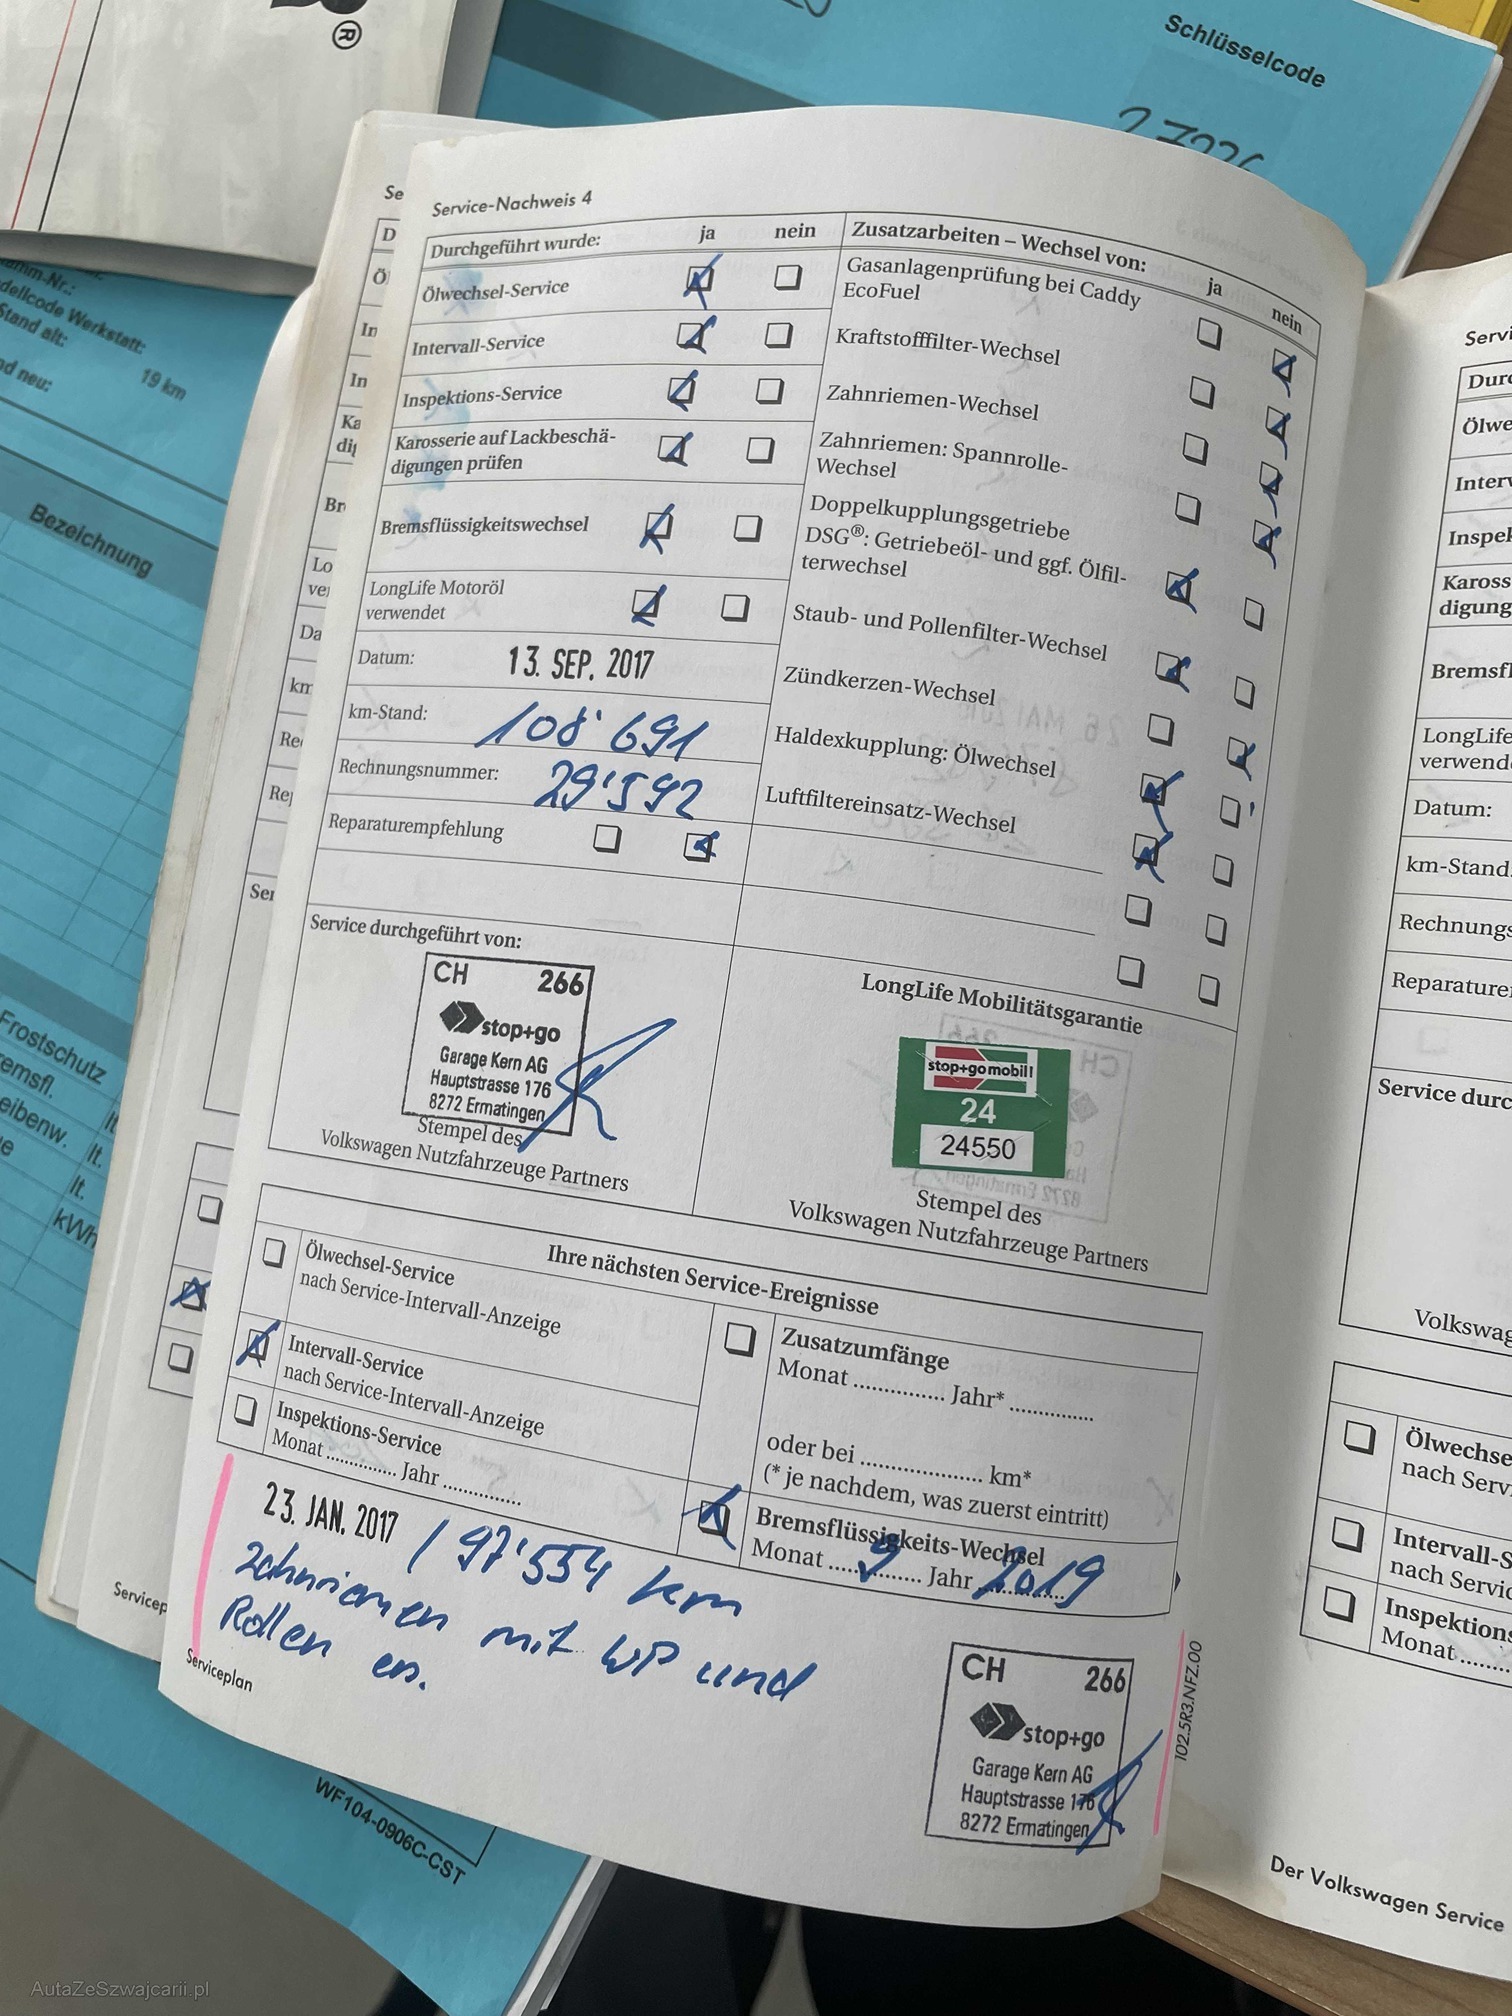 ®
Schlüsselcode
dellcode Werkstatt:
Stand alt:
nd neu:
19 km
Bezeichnung
Frostschutz
lt.
lt.
lt.
kWh
WF104-0906C-CST
Service-Nachweis 4
Durchgeführt wurde: ja nein
Ölwechsel-Service
Intervall-Service
Inspektions-Service
Karosserie auf Lackbeschä-
digungen prüfen
Bremsflüssigkeitswechsel
LongLife Motoröl
verwendet
Datum: 13. SEP. 2017
km-Stand: 108'691
Rechnungsnummer: 29'592
Reparaturempfehlung
Zusatzarbeiten – Wechsel von:
ja nein
Gasanlagenprüfung bei Caddy
EcoFuel
Kraftstofffilter-Wechsel
Zahnriemen-Wechsel
Zahnriemen: Spannrolle-
Wechsel
Doppelkupplungsgetriebe
DSG®: Getriebeöl- und ggf. Ölfil-
terwechsel
Staub- und Pollenfilter-Wechsel
Zündkerzen-Wechsel
Haldexkupplung: Ölwechsel
Luftfiltereinsatz-Wechsel
Service durchgeführt von:
CH 266
stop+go
Garage Kern AG
Hauptstrasse 176
8272 Ermatingen
Stempel des
Volkswagen Nutzfahrzeuge Partners
LongLife Mobilitätsgarantie
stop+go mobil!
24
24550
Stempel des
Volkswagen Nutzfahrzeuge Partners
Ihre nächsten Service-Ereignisse
Ölwechsel-Service
nach Service-Intervall-Anzeige
Intervall-Service
nach Service-Intervall-Anzeige
Inspektions-Service
Monat .............. Jahr ................
Zusatzumfänge
Monat ................ Jahr* ...............
oder bei ..................... km*
(* je nachdem, was zuerst eintritt)
Bremsflüssigkeits-Wechsel
Monat 9 Jahr 2019
23. JAN. 2017 / 97'554 km
Zahnriemen mit WP und
Rollen ers.
Serviceplan
CH 266
stop+go
Garage Kern AG
Hauptstrasse 176
8272 Ermatingen
102.5R3.NFZ.00
LongLife
Datum:
km-Stand
Der Volkswagen Service
AutaZeSzwajcarii.pl